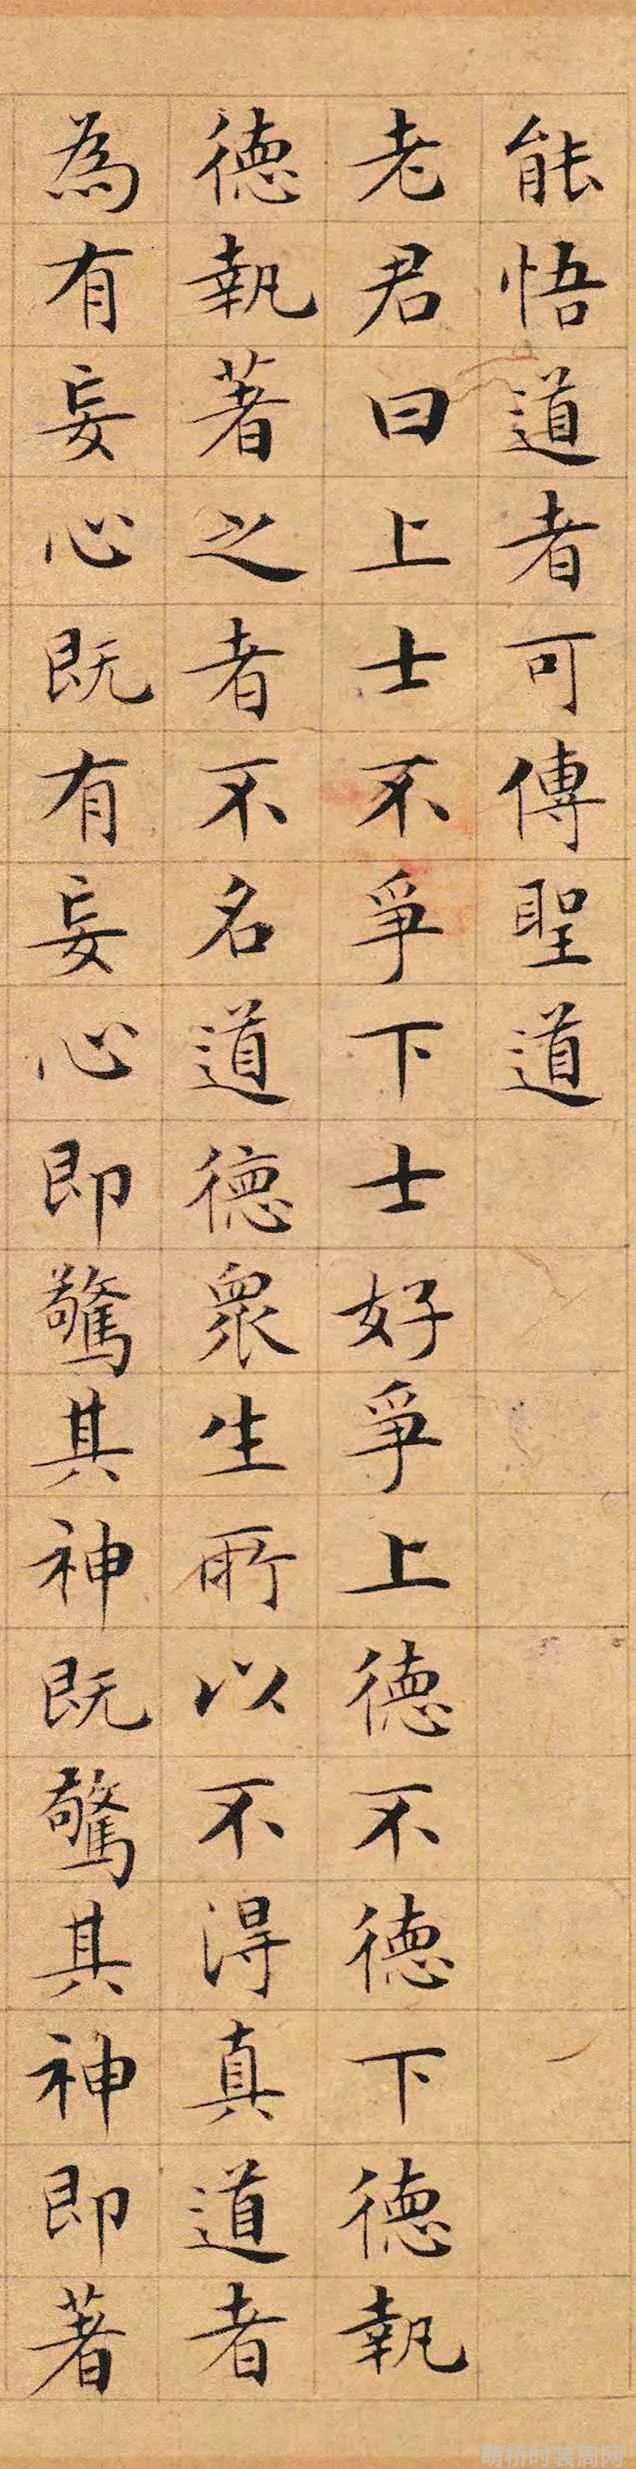 能悟道者可傳聖道
老君曰上士不爭下士好爭上德不德下德執
德執著之者不名道德衆生所以不得真道者
為有妄心既有妄心即驚其神既驚其神即著
萌桥时装周网